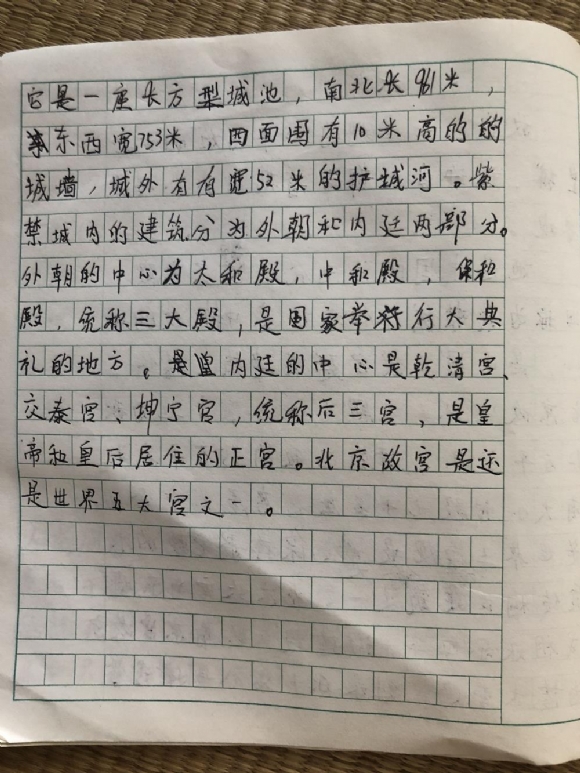 它是一座长方型城池，南北长961米，
东西宽753米，四面围有10米高的的
城墙，城外有有宽52米的护城河。紫
禁城内的建筑分为外朝和内廷两部分。
外朝的中心为太和殿，中和殿，保和
殿，统称三大殿，是国家举行大典
礼的地方。内廷的中心是乾清宫、
交泰宫、坤宁宫，统称后三宫，是皇
帝和皇后居住的正宫。北京故宫是还
是世界五大宫之一。